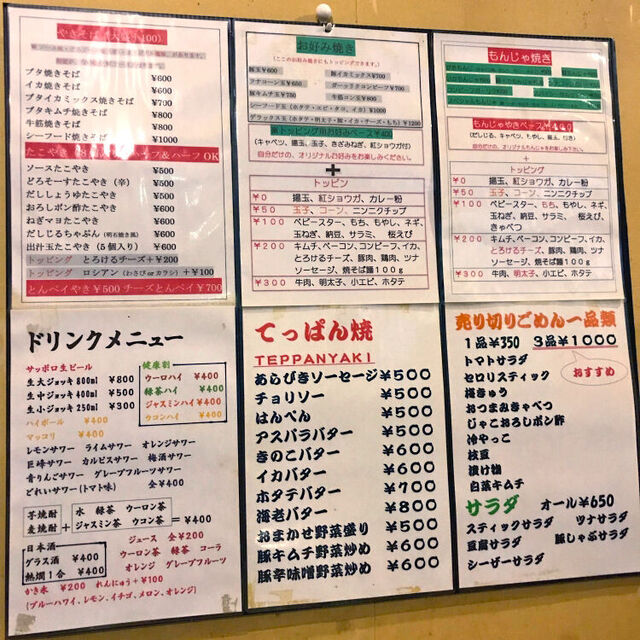 やきそば
ブタ焼きそば ¥600
イカ焼きそば ¥600
ブタイカミックス焼きそば ¥700
ブタキムチ焼きそば ¥800
牛筋焼きそば ¥800
シーフード焼きそば ¥1000
たこやき
ハーフ&ハーフ OK
ソースたこやき ¥500
どろそーすたこやき（辛） ¥500
だししょうゆたこやき ¥500
おろしポン酢たこやき ¥600
ねぎマヨたこやき ¥600
だしじるちゃぷん（明石焼き風） ¥600
出汁玉たこやき（５個入り） ¥600
トッピング とろけるチーズ＋¥200
トッピング ロシアン（わさび or カラシ）＋¥100
とんペイ焼き¥500 チーズとんペイ¥700
お好み焼き
（ここのお好み焼きにもトッピングできます。）
豚玉¥600 豚イカミックス¥700
豚キムチ玉¥700 牛筋コン玉¥800
シーフード玉（ホタテ・エビ・タコ、イカ） ¥1000
デラックス玉（ホタテ・明太子・豚・イカ・チーズ・もち）¥1200
※トッピング用お好みベース¥400
（キャベツ、揚玉、玉子、きざみねぎ、紅ショウガ付）
自分だけの、オリジナルお好みをお楽しみください。
＋
トッピン
¥0 揚玉、紅ショウガ、カレー粉
¥50 玉子、コーン、ニンニクチップ
¥100 ベビースター、もち、もやし、ネギ、
玉ねぎ、納豆、サラミ、 桜えび
¥200 キムチ、ベーコン、コンビーフ、イカ、
とろけるチーズ、豚肉、鶏肉、ツナ
ソーセージ、焼そば麺１００ｇ
¥300 牛肉、明太子、小エビ、ホタテ
もんじゃ焼き
もんじゃやきベース¥400
（だしじる、キャベツ、天かす、
自分だけの、オリジナルもんじゃをお楽しみください。
＋
トッピング
¥0 揚玉、紅ショウガ、カレー粉
¥50 玉子、コーン、ニンニクチップ
¥100 ベビースター、もち、もやし、ネギ
玉ねぎ、納豆、サラミ、 桜えび、
きゃべつ
¥200 キムチ、ベーコン、コンビーフ、イカ、
とろけるチーズ、豚肉、鶏肉、ツナ
ソーセージ、焼そば麺１００ｇ
¥300 牛肉、明太子、小エビ、ホタテ
ドリンクメニュー
サッポロ生ビール
生大ジョッキ 800ml ¥800
生中ジョッキ 400ml ¥400
生小ジョッキ 250ml ¥300
ハイボール ¥400
マッコリ ¥400
健康割
ウーロハイ ¥400
緑茶ハイ ¥400
ジャスミンハイ ¥400
ウコンハイ ¥400
レモンサワー ライムサワー オレンジサワー
巨峰サワー カルピスサワー 梅酒サワー
青りんごサワー グレープフルーツサワー
どれいサワー（トマト味） 全¥400
芋焼酎
麦焼酎
＋
水 緑茶 ウーロン茶
ジャスミン茶 ウコン茶
＝¥400
日本酒
グラス酒 ¥400
熱燗１合 ¥400
ジュース 全¥200
ウーロン茶 緑茶 コーラ
オレンジ グレープフルーツ
かき氷 ¥200 れんにゅう＋¥100
（ブルーハワイ、レモン、イチゴ、メロン、オレンジ）
てっぱん焼
TEPPANYAKI
あらびきソーセージ ¥500
チョリソー ¥500
はんぺん ¥500
アスパラバター ¥500
きのこバター ¥600
イカバター ¥600
ホタテバター ¥700
海老バター ¥800
おまかせ野菜盛り ¥500
豚キムチ野菜炒め ¥600
豚辛味噌野菜炒め ¥600
売り切りごめん一品類
１品¥350 ３品¥1000
おすすめ
トマトサラダ
セロリスティック
梅きゅう
おつまみきゃべつ
じゃこおろしポン酢
冷やっこ
枝豆
漬け物
白菜キムチ
サラダ オール¥650
スティックサラダ ツナサラダ
豆腐サラダ 豚しゃぶサラダ
シーザーサラダ